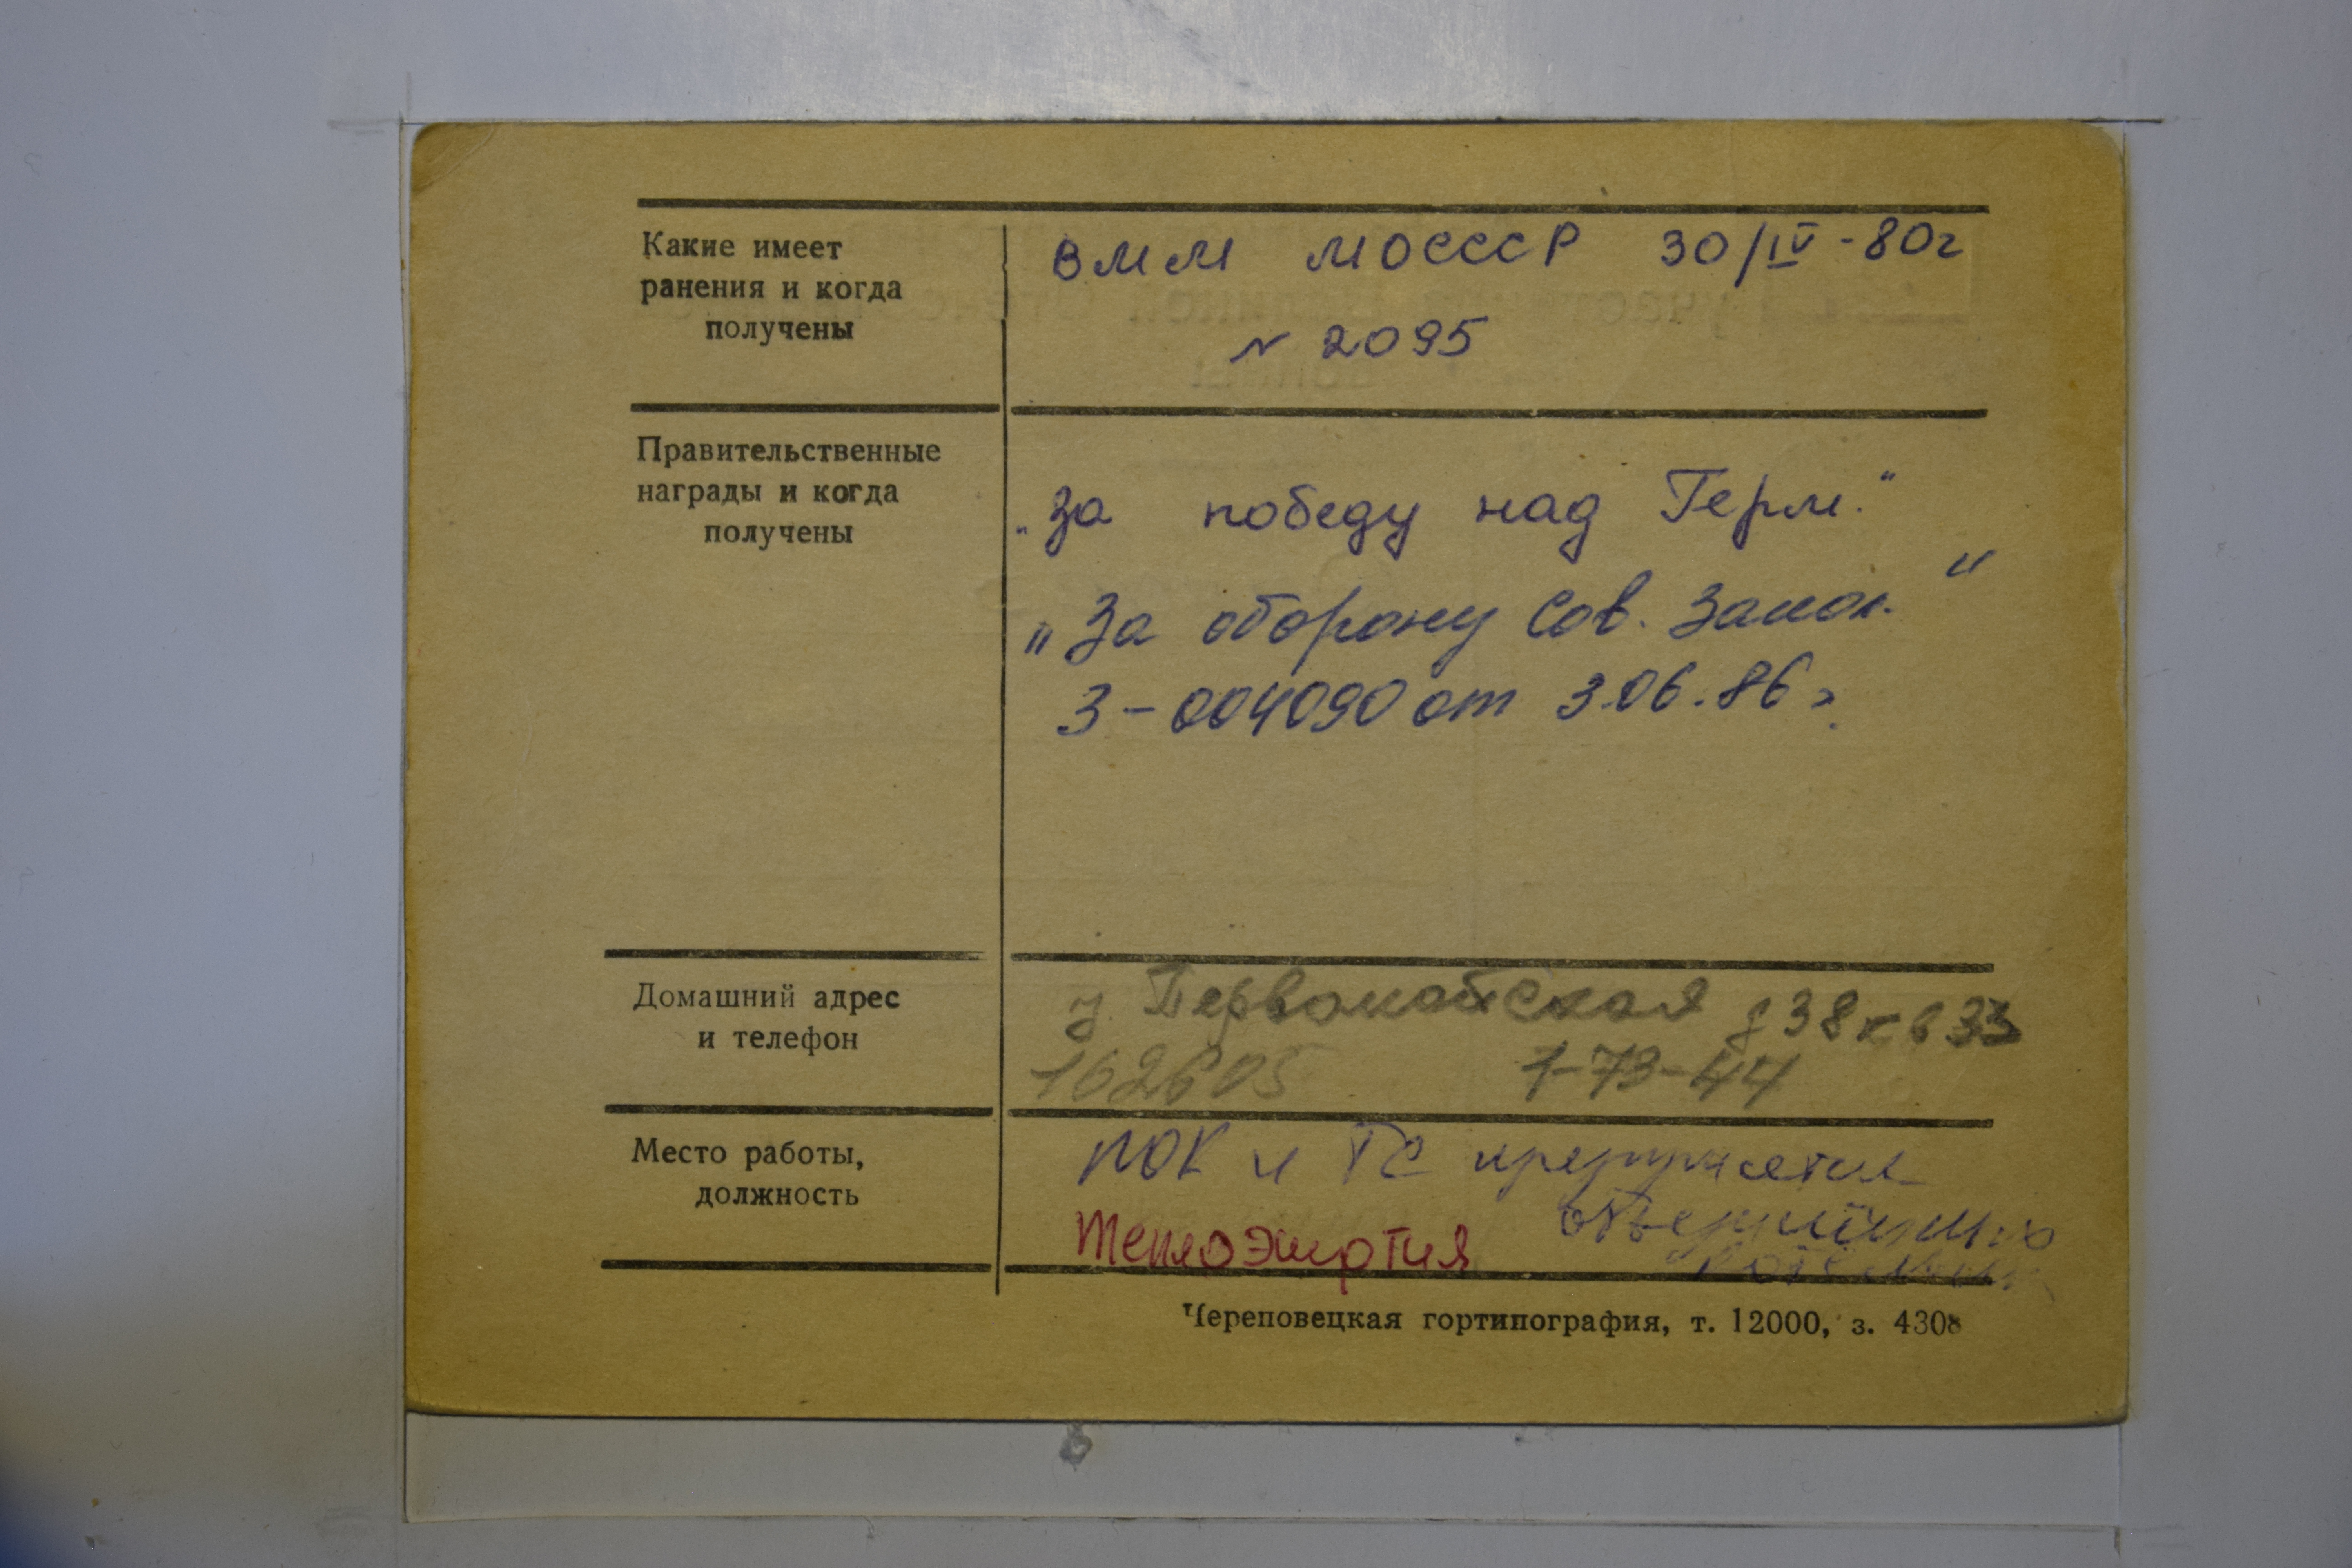 Какие имеет
ранения и когда
получены
ВММ МОСССР 30/IV-80г
N 2095
Правительственные
награды и когда
получены
„За победу над Герм."
„За оборону Сов. Запол."
З-004090 от 3.06.86г.
Домашний адрес
и телефон
у. Первомайская д 38 кв 33
162605 7-73-44
Место работы,
должность
ПОК и ТС предприятия
объединённых
котельных
Теплоэнергия
Череповецкая гортипография, т. 12000, з. 4308